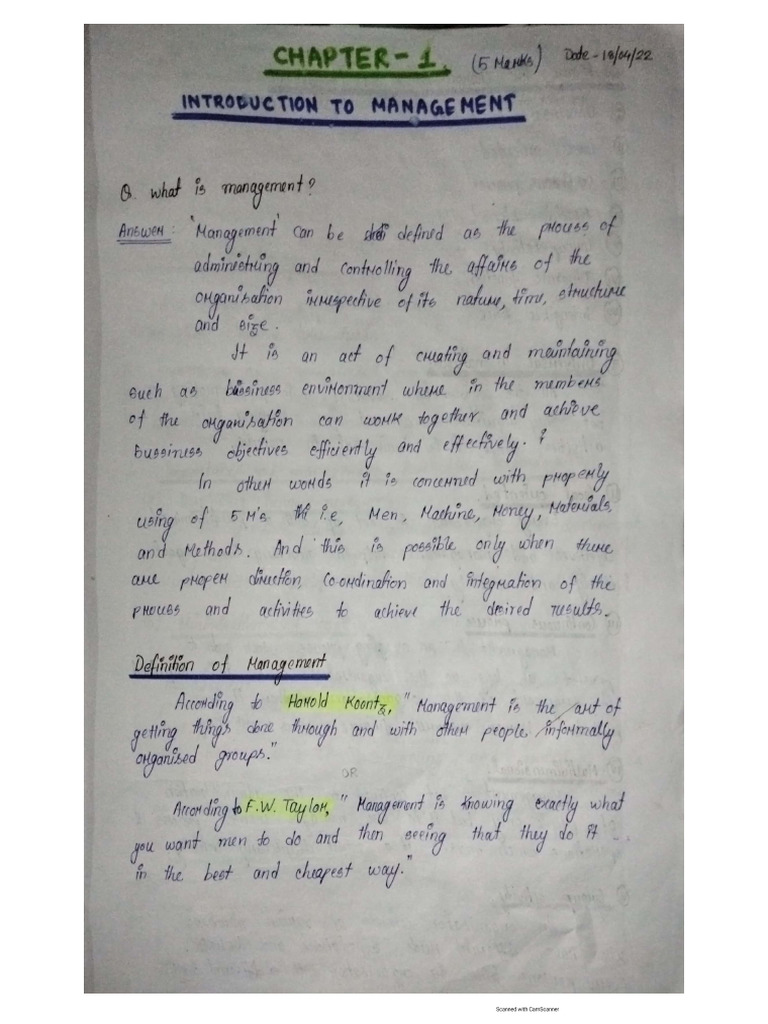 CHAPTER-1. (5 Marks) Date-18/04/22
INTRODUCTION TO MANAGEMENT
Q. What is management?
Answer: 'Management' can be defined as the process of
administring and controlling the affairs of the
organisation irrespective of its nature, time, structure
and size.
It is an act of creating and maintaining
such as bussiness environment where in the members
of the organisation can work together and achieve
bussiness objectives efficiently and effectively.
In other words it is concerned with properly
using of 5 M's i.e, Men, Machine, Money, Materials,
and Methods. And this is possible only when there
are proper direction, Co-ordination and integration of the
process and activities to achieve the desired results.
Definition of Management
According to Harold Koontz, "Management is the art of
getting things done through and with other people informally
organised groups."
OR
According to F.W. Taylor, "Management is knowing exactly what
you want men to do and then seeing that they do it
in the best and cheapest way."
Scanned with CamScanner